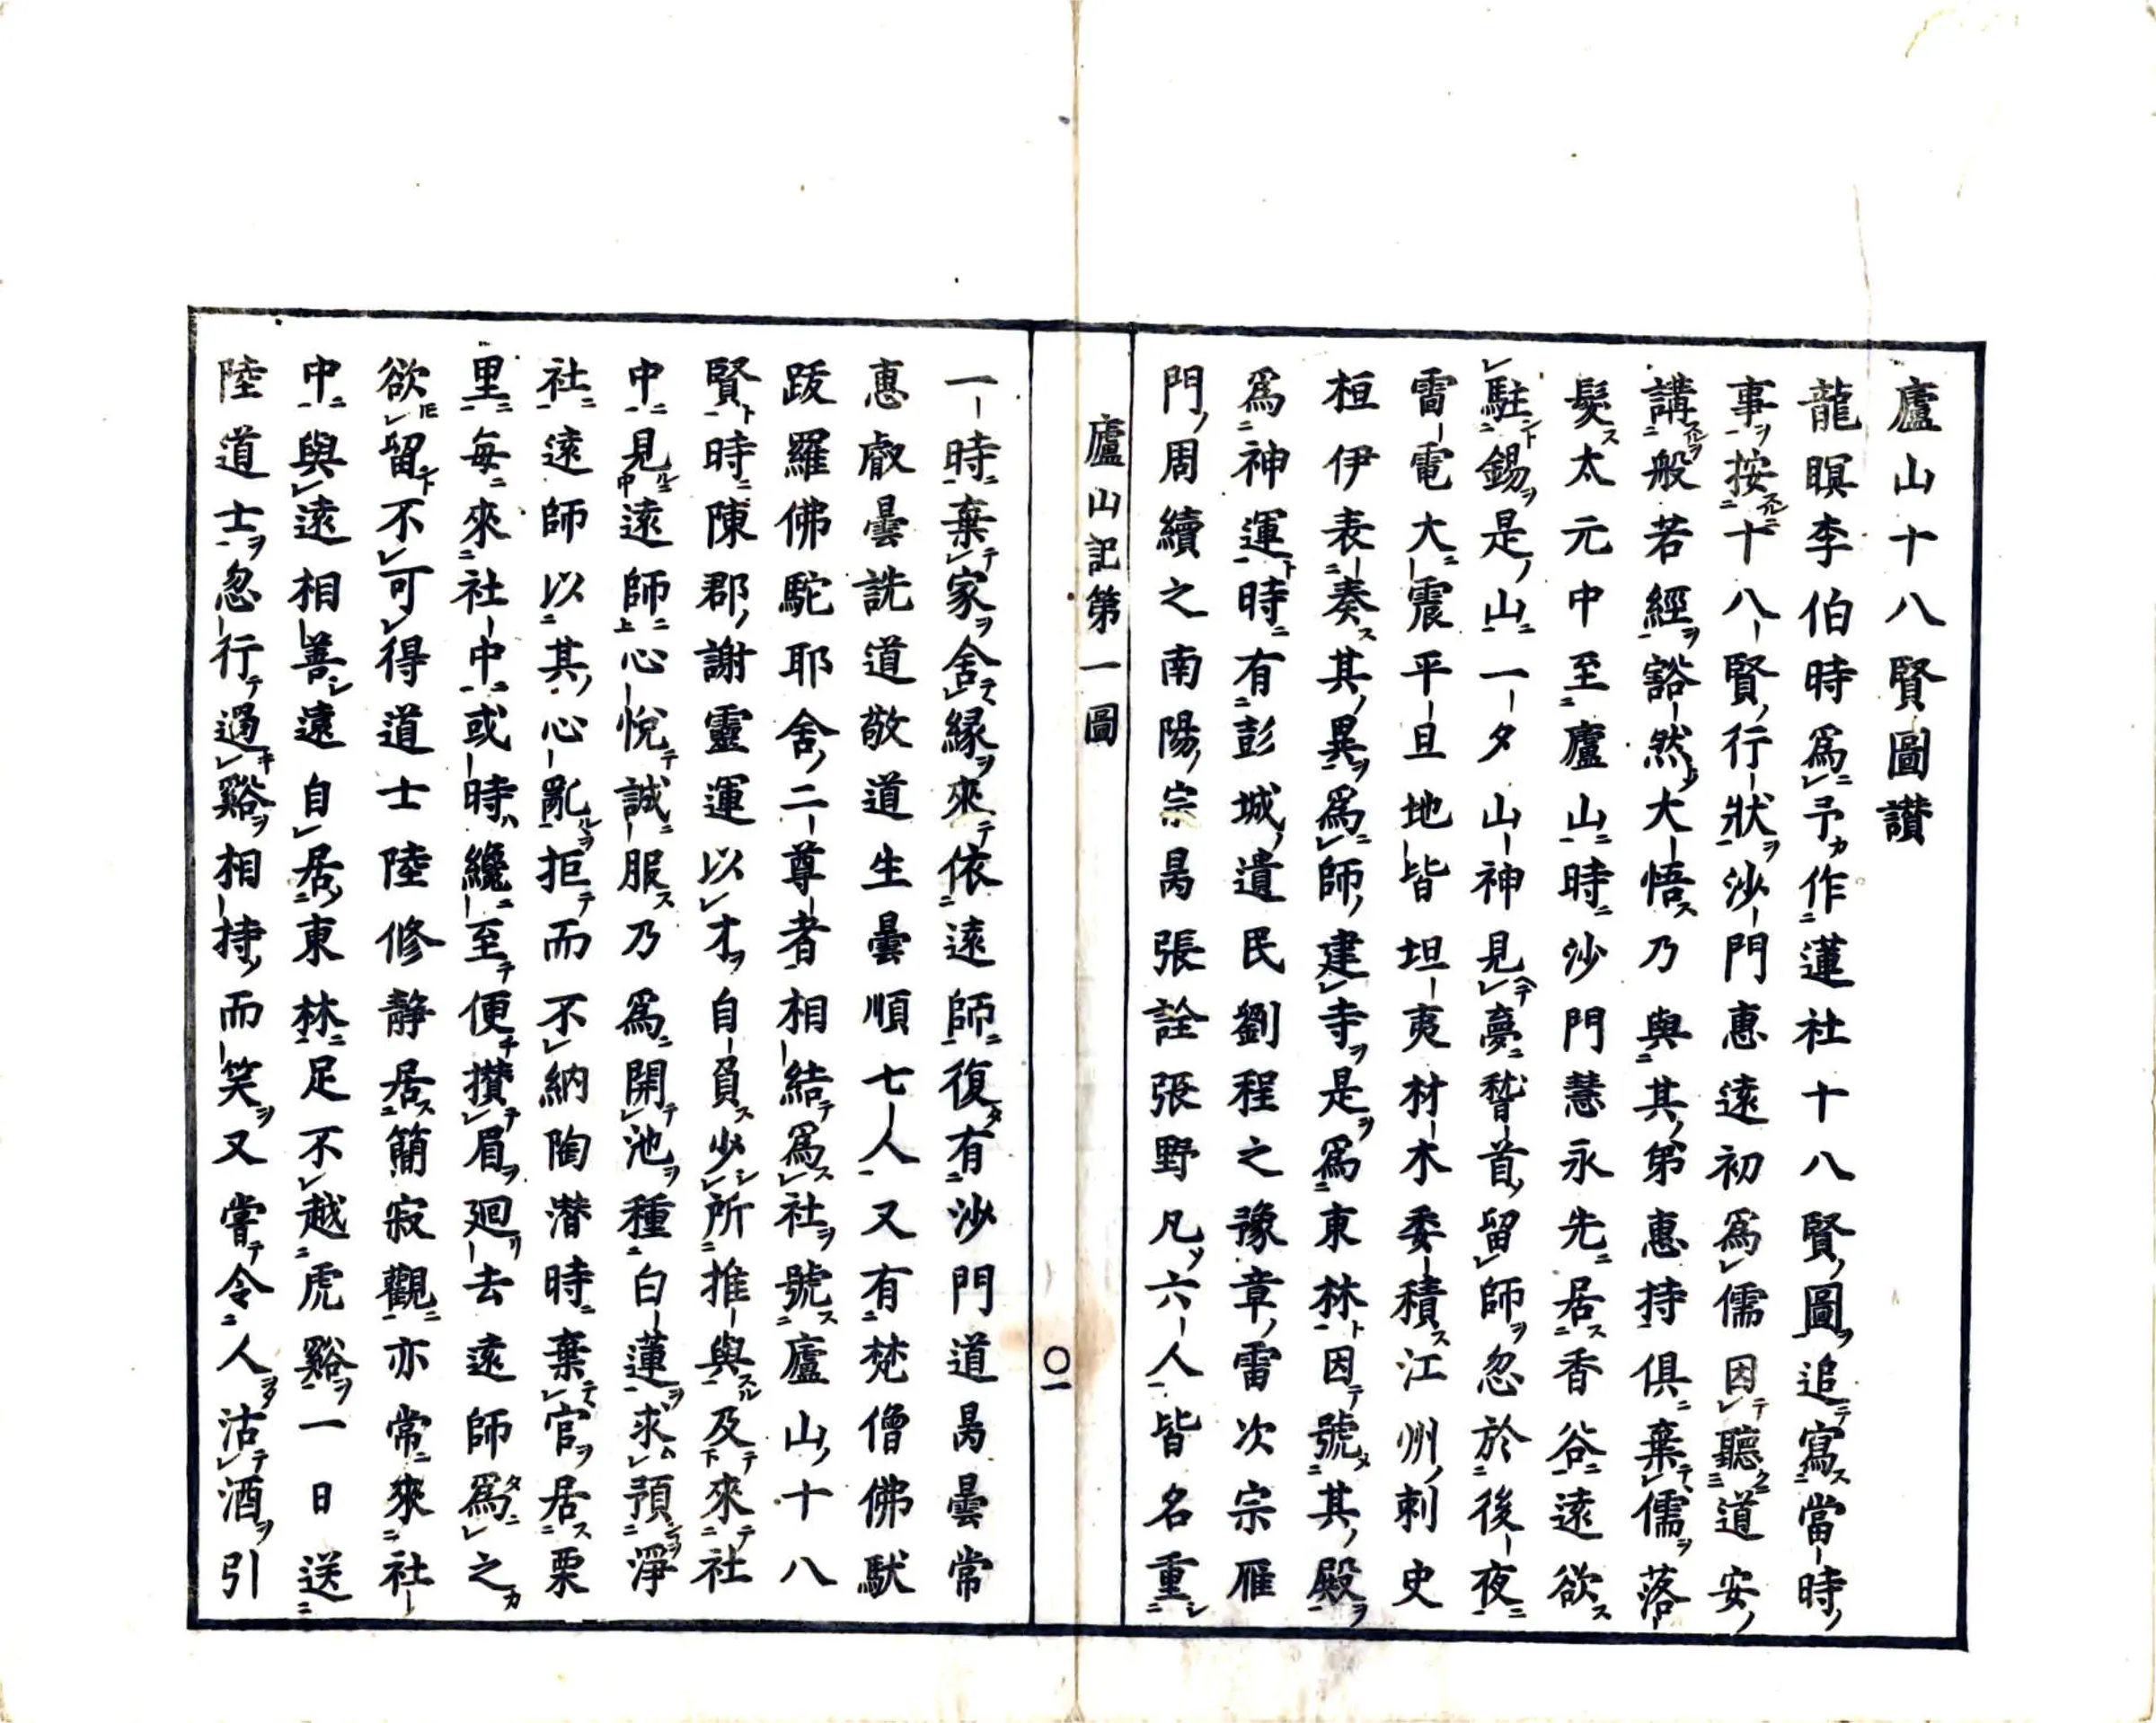 廬山十八賢圖讃
龍瞑李伯時爲予作蓮社十八賢圖追寫當時
事按十八賢行狀沙門惠遠初爲儒因聽道安
講般若經豁然大悟乃與其弟惠持俱棄儒落
髮太元中至廬山時沙門慧永先居香谷遠欲
駐錫是山一夕山神見夢稽首留師忽於後夜
雷電大震平旦地皆坦夷材木委積江州刺史
桓伊表奏其異爲師建寺是爲東林因號其殿
爲神運時有彭城遺民劉程之豫章雷次宗雁
門周續之南陽宗昺張詮張野凡六人皆名重
廬山記第一圖
〇一
一時棄家舍緣來依遠師復有沙門道昺曇常
惠叡曇詵道敬道生曇順七人又有梵僧佛馱
跋羅佛駝耶舍二尊者相結爲社號廬山十八
賢時陳郡謝靈運以才自負少所推與及來社
中見遠師心悅誠服乃爲開池種白蓮求預淨
社遠師以其心亂拒而不納陶潜時棄官居栗
里每來社中或時纔至便攢眉廻去遠師爲之
欲留不可得道士陸修靜居簡寂觀亦常來社
中與遠相善遠自居東林足不越虎谿一日送
陸道士忽行過谿相持而笑又嘗令人沽酒引